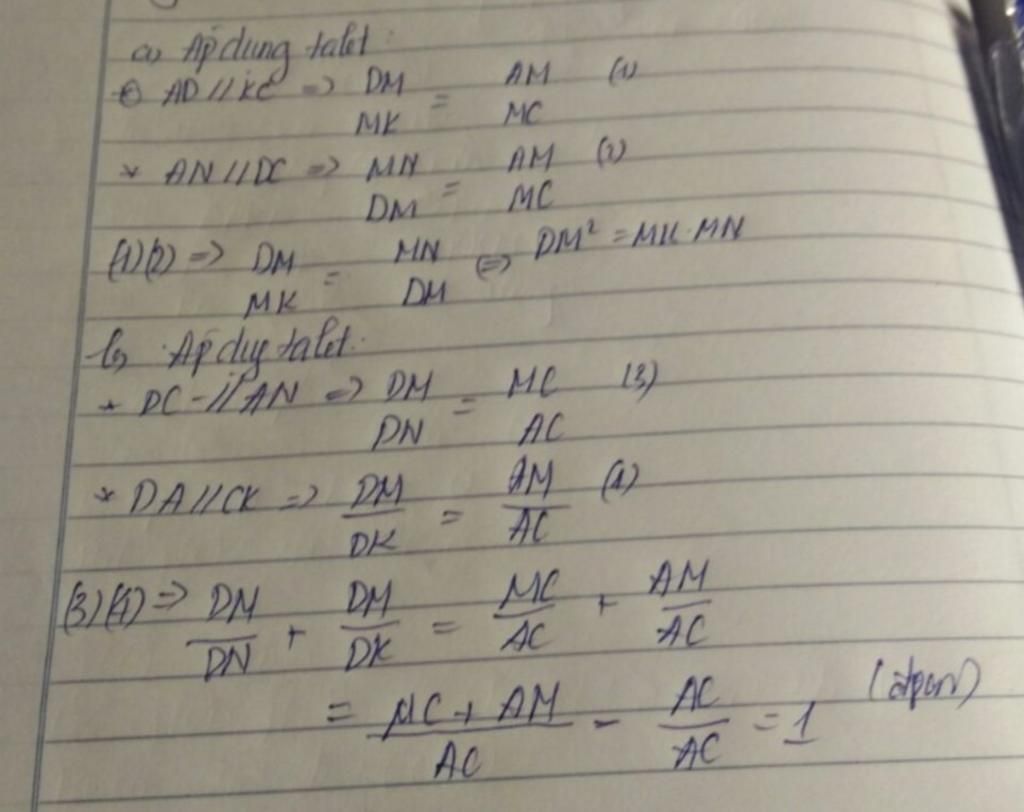 a) Áp dụng talet:
* AD // KC => DM/MK = AM/MC (1)
* AN // DC => MN/DM = AM/MC (2)
(1)(2) => DM/MK = MN/DM <=> DM² = MK.MN
b) Áp dụg talet:
* DC // AN => DM/DN = MC/AC (3)
* DA // CK => DM/DK = AM/AC (4)
(3)(4) => DM/DN + DM/DK = MC/AC + AM/AC
= MC + AM/AC = AC/AC = 1 (đpcm)